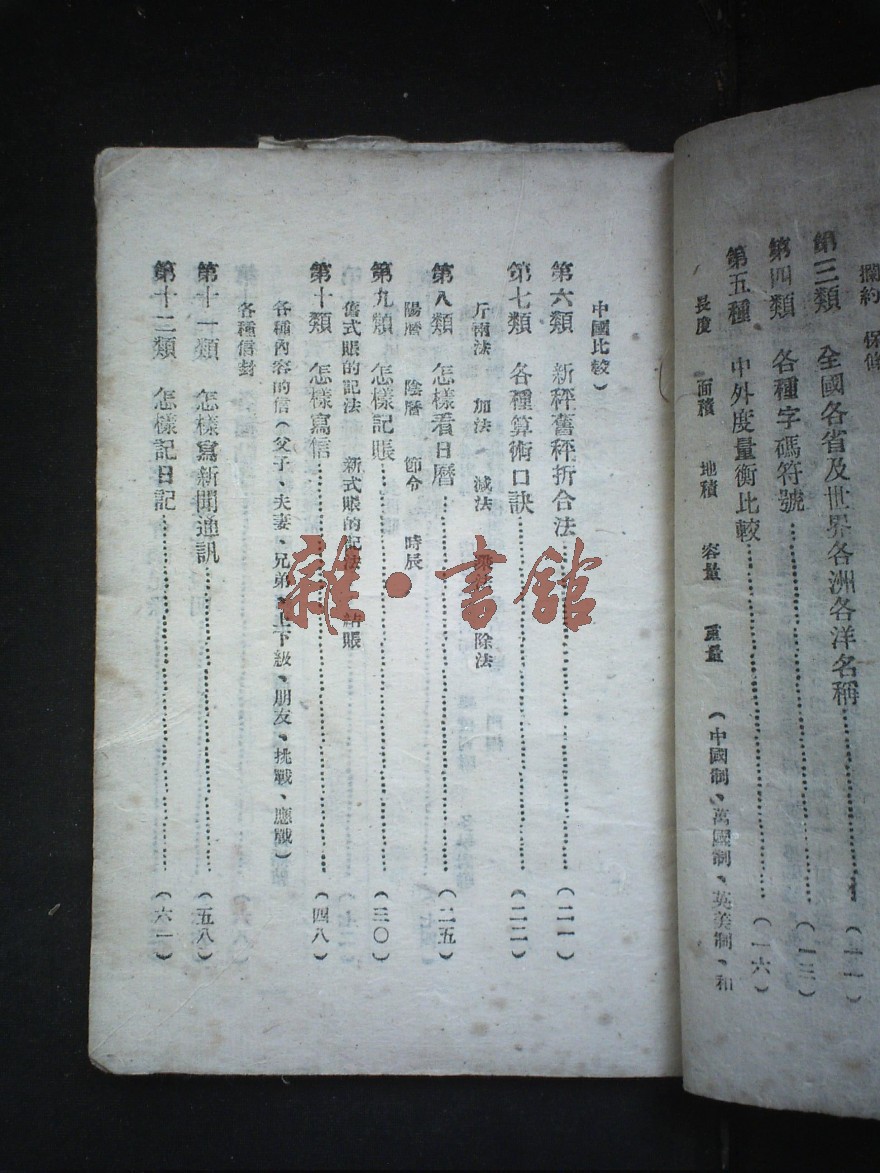 第三類　全國各省及世界各洲各洋名稱……（一一）
第四類　各種字碼符號……（一三）
第五種　中外度量衡比較……（一六）
長度　面積　地積　容量　重量　（中國制、萬國制、英美制、和
中國比較）
第六類　新秤舊秤折合法……（二一）
第七類　各種算術口訣……（二二）
斤兩法　加法　減法　乘法　除法
第八類　怎樣看日曆……（二五）
陽曆　陰曆　節令　時辰
第九類　怎樣記賬……（三〇）
舊式賬的記法　新式賬的記法　結賬
第十類　怎樣寫信……（四八）
各種內容的信（父子、夫妻、兄弟、上下級、朋友、挑戰、應戰）
各種信封
第十一類　怎樣寫新聞通訊……（五八）
第十二類　怎樣記日記……（六一）
雜·書館